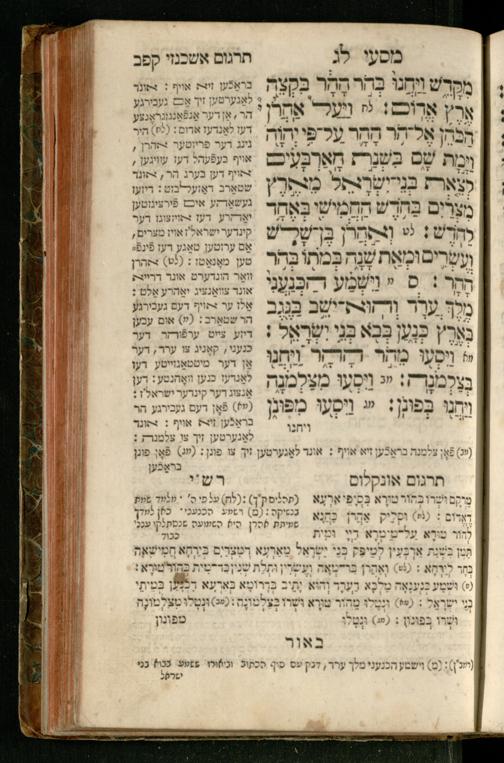 מסעי לג
תרגום אשכנזי קפב
מִקָּדֵשׁ וַיַּחֲנוּ בְּהֹר הָהָר בִּקְצֵה
אֶרֶץ אֱדוֹם: לח וַיַּעַל אַהֲרֹן
הַכֹּהֵן אֶל־הֹר הָהָר עַל־פִּי יְהֹוָה
וַיָּמָת שָׁם בִּשְׁנַת הָאַרְבָּעִים
לְצֵאת בְּנֵי־יִשְׂרָאֵל מֵאֶרֶץ
מִצְרַיִם בַּחֹדֶשׁ הַחֲמִישִׁי בְּאֶחָד
לַחֹדֶשׁ: לט וְאַהֲרֹן בֶּן־שָׁלֹשׁ
וְעֶשְׂרִים וּמְאַת שָׁנָה בְּמֹתוֹ בְּהֹר
הָהָר: ס מ וַיִּשְׁמַע הַכְּנַעֲנִי
מֶלֶךְ עֲרָד וְהוּא־יֹשֵׁב בַּנֶּגֶב
בְּאֶרֶץ כְּנָעַן בְּבֹא בְּנֵי יִשְׂרָאֵל:
מא וַיִּסְעוּ מֵהֹר הָהָר וַיַּחֲנוּ
בְּצַלְמֹנָה: מב וַיִּסְעוּ מִצַּלְמֹנָה
וַיַּחֲנוּ בְּפוּנֹן: מג וַיִּסְעוּ מִפּוּנֹן
ויחנו
בראכֿען זיא אויף: אונד
לאגערטען זיך אם געבירגע
הר, אן דער אנפֿאנגזגראנצע
דעז לאנדעז אדום: (לח) היר
גינג דער פריזטער אהרן,
אויף בעפֿעהל דעז עוויגען,
אויף דען בערג הר, אונד
שטארב דאזעלבזט: דיזעז
געשאה אים פֿירציגזטען
יאהרע דעז אויזצוגז דער
קינדער ישראל'ז אויז מצרים,
אם ערזטען טאגע דעז פֿינפֿ־
טען מאנאטז: (לט) אהרן
וואר הונדערט אונד דרייא
אונד צוואנציג יאהרע אלט:
אלז ער אויף דעם געבירגע
הר שטארב: (מ) אום עבען
דיזע צייט ערפֿוהר דער
כנעני, קאניג צו ערד, דער
אן דער מיטטאגזייטע דעז
לאנדעז כנען וואהנטע: דען
אנצוג דער קינדער ישראל'ז:
(מא) פֿאן דעם געבירגע הר
בראכֿען זיא אויף: אונד
לאגערטען זיך צו צלמנה:
(מב) פֿאן צלמנה בראכֿען זיא אויף: אונד לאגערטען זיך צו פונן: (מג) פֿאן פונן
בראכֿען
תרגום אונקלוס
מֵרְקַם וּשְׁרוֹ בְּהוֹר טוּרָא בִּסְיָפֵי אַרְעָא
דֶאֱדוֹם: (לח) וּסְלֵיק אַהֲרֹן כַּהֲנָא
לְהוֹר טוּרָא עַל־מֵימְרָא דַיְיָ וּמִית
תַּמָּן בִּשְׁנַת אַרְבְּעִין לְמִפַּק בְּנֵי יִשְׂרָאֵל מֵאַרְעָא דְמִצְרַיִם בְּיַרְחָא חֲמִישָׁאָה
בְּחַד לְיַרְחָא: (לט) וְאַהֲרֹן בַּר־מְאָה וְעֶשְׂרִין וּתְלָת שְׁנִין כַּד־מִית בְּהוֹר טוּרָא:
(מ) וּשְׁמַע כְּנַעֲנָאָה מַלְכָּא דַעֲרָד וְהוּא יָתֵיב בִּדְרוֹמָא בְּאַרְעָא דִכְנַעַן בְּמֵיתֵי
בְּנֵי יִשְׂרָאֵל: (מא) וּנְטָלוּ מֵהוֹר טוּרָא וּשְׁרוֹ בְּצַלְמוֹנָה: (מב) וּנְטָלוּ מִצַּלְמוֹנָה
וּשְׁרוֹ בְּפוּנוֹן: (מג) וּנְטָלוּ
מפונון
רש״י
(לח) על פי ה'. מלמד שמת
בנשיקה: (מ) וישמע הכנעני. כאן ללמדך
שמיתת אהרן היא השמועה שנסתלקו ענני
כבוד
באור
(מ) וישמע הכנעני מלך ערד, דבק עם סוף הכתוב וביאורו ששמע בבוא בני
ישראל